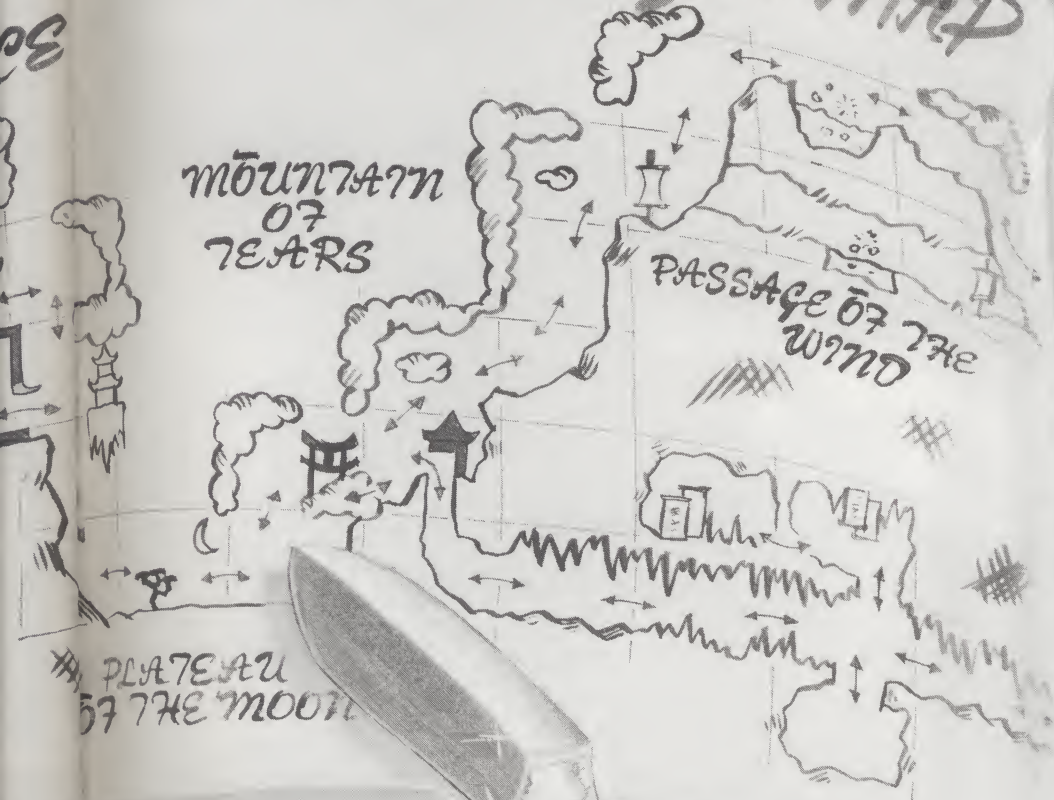 MAP
MOUNTAIN
OF
TEARS
PASSAGE OF THE
WIND
PLATEAU
OF THE MOON